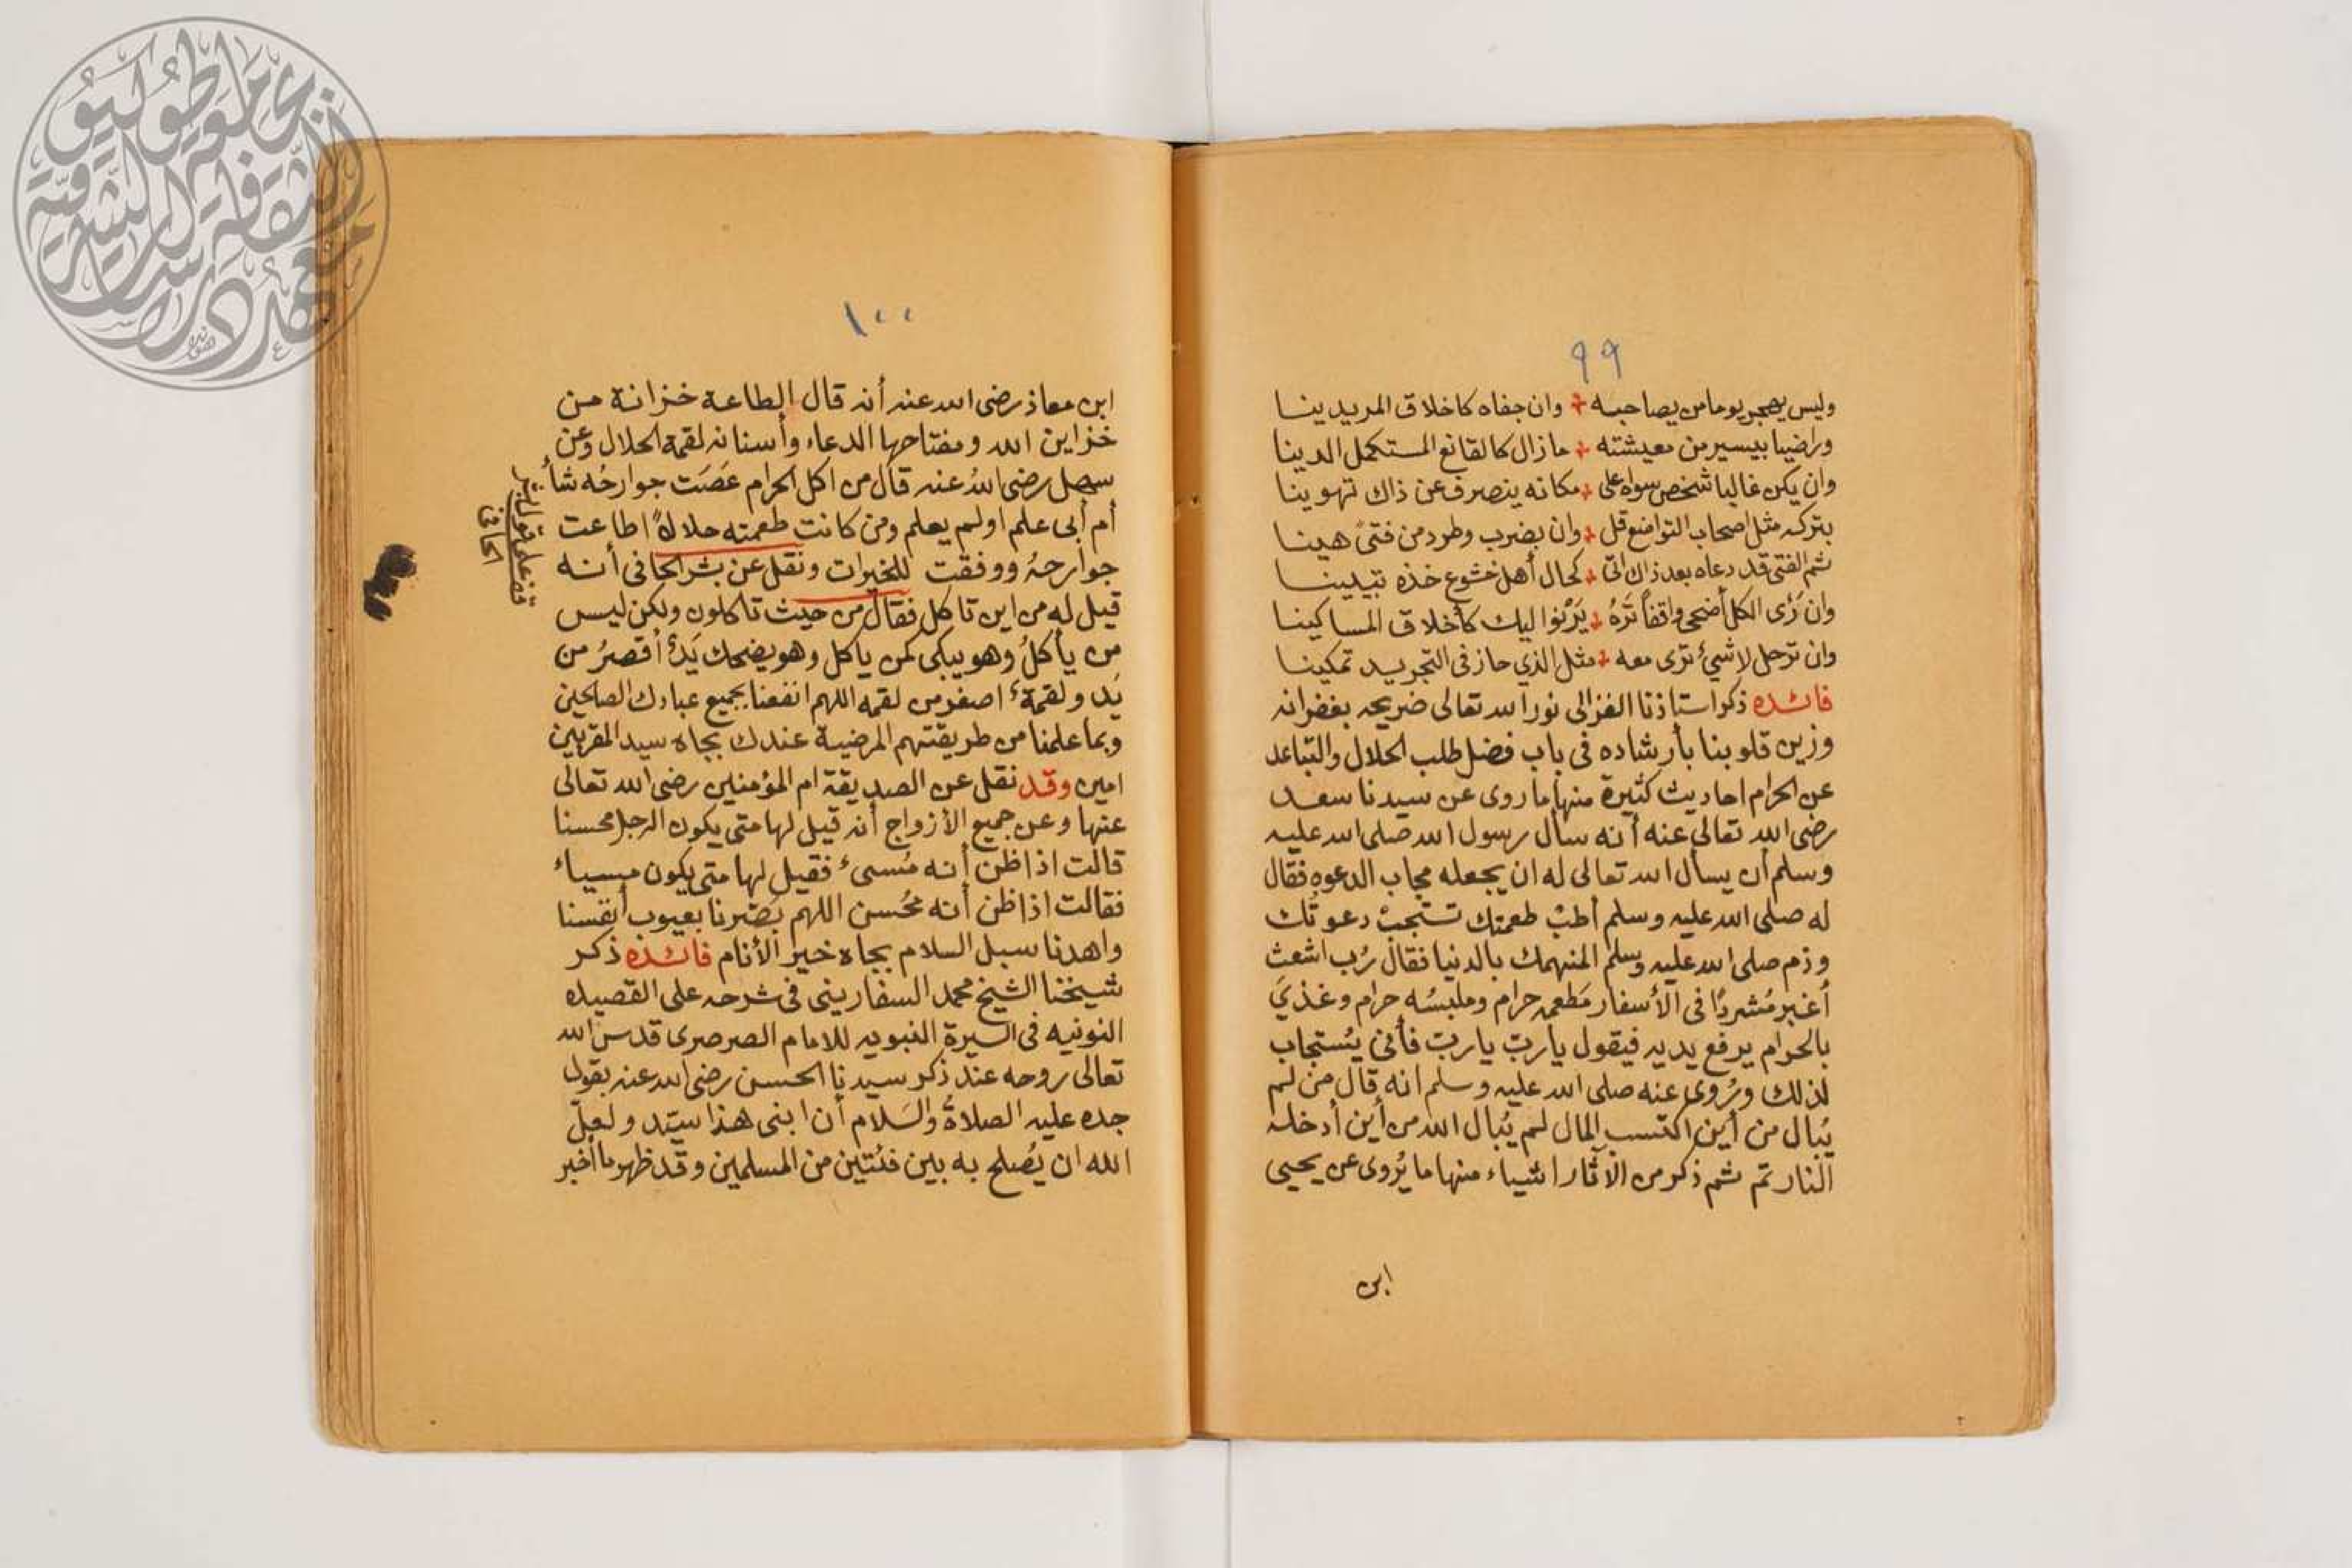 ٩٩
وليس يهجر يوما من يصاحبه وان جفاه كاخلاق المريدينا
وراضيا بيسير من معيشته ما زال كالقانع المستكمل الدينا
وان يكن غالبا شخص سواه على مكانه ينصرف عن ذاك تهوينا
بتركه مثل اصحاب التواضع قل وان بضرب وطرد من فتىً هينا
ثم الفتى قد دعاه بعد ذاك اتى كحال أهل خشوع خذه تبيينا
وان رَأى الاكل أضحى واقفاً تَرَهُ يَرْنوا اليك كأخلاق المساكينا
وان ترحل لا شيئ ترى معه مثل الذي حاز فى التجريد تمكينا
فائده ذكر استاذنا الغزالى نور الله تعالى ضريحه بغفرانه
وزين قلوبنا بأرشاده فى باب فضل طلب الحلال والتباعد
عن الحرام احاديث كثيرة منها ما روى عن سيدنا سعد
رضى الله تعالى عنه أنه سال رسول الله صلى الله عليه
وسلم أن يسأل الله تعالى له ان يجعله مجاب الدعوه فقال
له صلى الله عليه وسلم أطبْ طعمتك تستجبْ دعوتُك
وذم صلى الله عليه وسلم المنهمك بالدنيا فقال رُب اشعث
أغبر مُشردًا فى الأسفار مَطعمه حرام وملبسُه حرام وغذيَ
بالحرام يرفع يديه فيقول ياربّ ياربّ فأنى يُستجاب
لذلك ورُوى عنه صلى الله عليه وسلم انه قال من لم
يُبال من أين اكتسب المال لم يُبال الله من أين أدخله
النار تم ثم ذكر من الآثار اشياء منها ما يُروى عن يحيى
ابن
١٠٠
ابن معاذ رضى الله عنه أنه قال الطاعة خزانة من
خزاين الله ومفتاحها الدعاء وأسنانه لقمة الحلال وعن
سهل رضى اللهُ عنه قال من اكل الحرام عَصَت جوارحُه شأ
أم أبى علم او لم يعلم ومن كانت طعمته حلالاً اطاعت
جوارحهُ ووفقت للخيرات ونقل عن بشر الحافى أنه
قيل له من اين تاكل فقال من حيث تاكلون ولكن ليس
من يأكلُ وهو يبكى كمن ياكل وهو يضحك يَدٌ أقصرُ من
يَد ولقمةٌ اصغر من لقمه اللهم انفعنا بجميع عبادك الصالحين
وبما علمنا من طريقتهم المرضية عندك بجاه سيد المقربين
امين وقد نقل عن الصديقة ام المؤمنين رضى الله تعالى
عنها وعن جميع الأزواج أنه قيل لها متى يكون الرجل محسنا
قالت اذا ظن أنه مُسىئ فقيل لها متى يكون مسياء
فقالت اذا ظن أنه مُحسن اللهم بَصّرنا بعيوب أنفسنا
واهدنا سبل السلام بجاه خير الأنام فائده ذكر
شيخنا الشيخ محمد السفارينى فى شرحه على القصيده
النونيه فى السيرة النبويه للامام الصرصرى قدس الله
تعالى روحه عند ذكر سيدنا الحسن رضى الله عنه بقول
جده عليه الصلاةُ والسَلام أن ابنى هذا سيّد ولعلّ
الله ان يُصلح به بين فئتين من المسلمين وقد ظهر ما أخبر
قف على قول بشر
الحافى